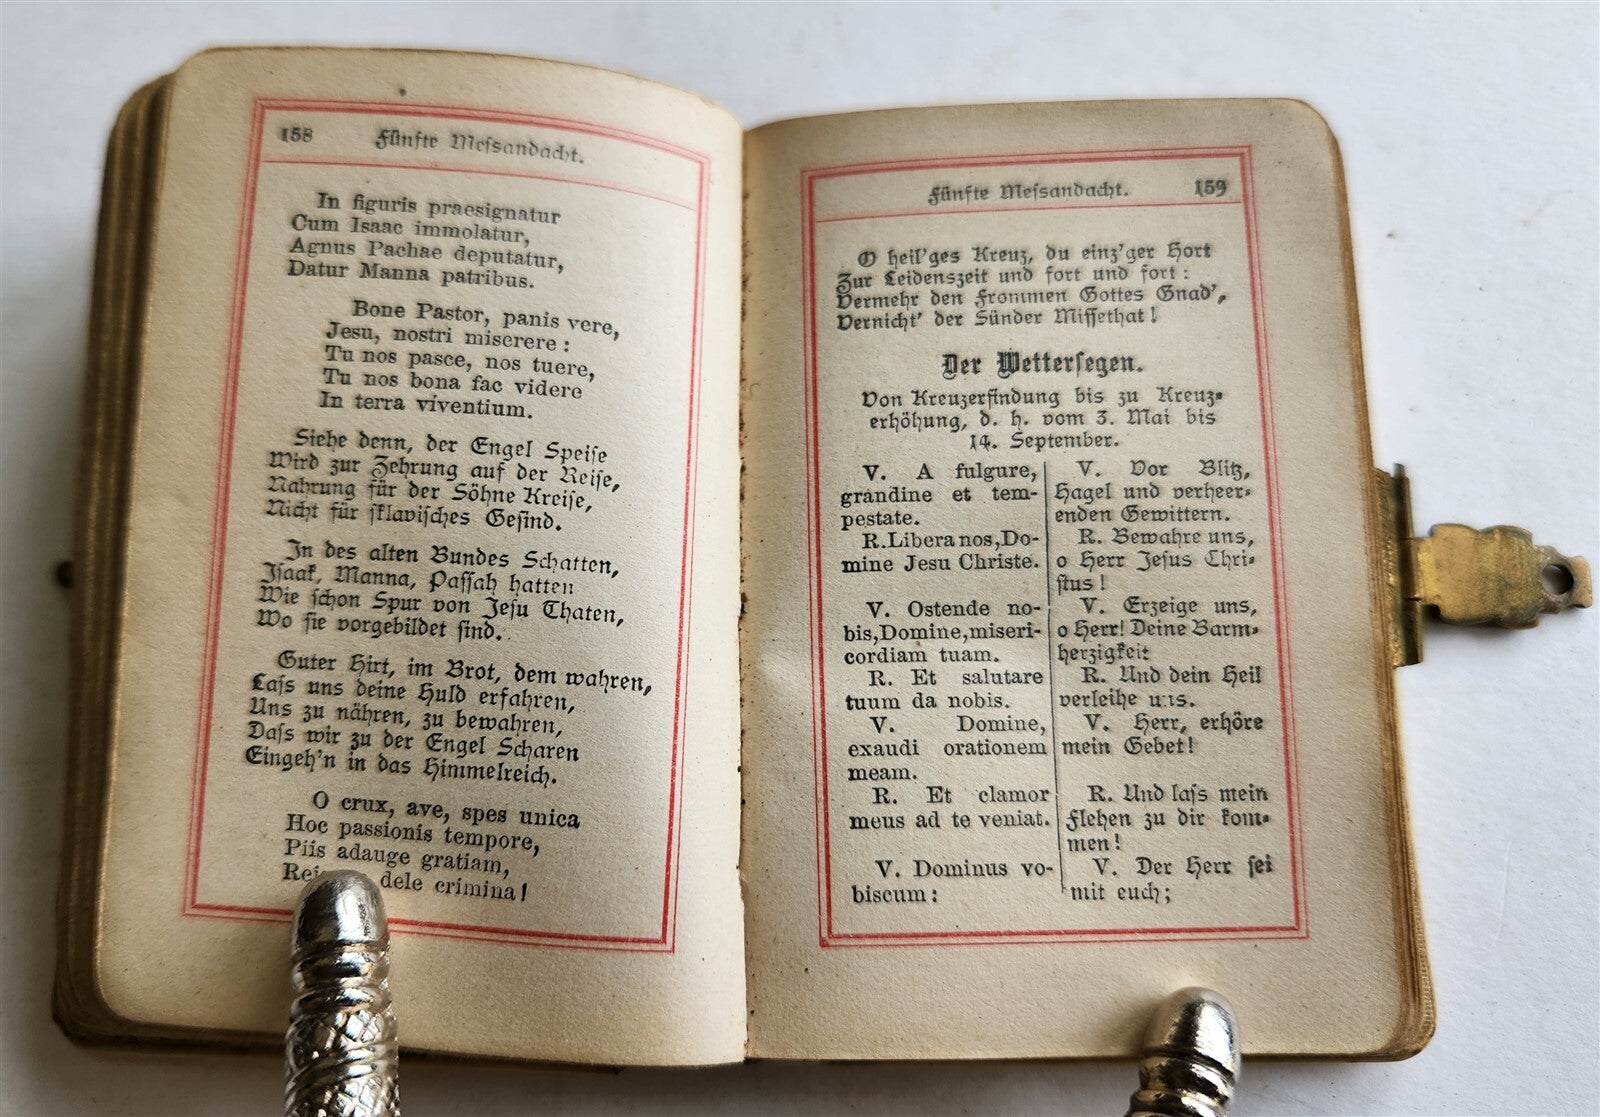 158 Fünfte Messandacht.
In figuris praesignatur
Cum Isaac immolatur,
Agnus Pachae deputatur,
Datur Manna patribus.
Bone Pastor, panis vere,
Jesu, nostri miserere:
Tu nos pasce, nos tuere,
Tu nos bona fac videre
In terra viventium.
Siehe denn, der Engel Speise
Wird zur Zehrung auf der Reise,
Nahrung für der Söhne Kreise,
Nicht für sklavisches Gesind.
In des alten Bundes Schatten,
Isaak, Manna, Passah hatten
Wie schon Spur von Jesu Thaten,
Wo sie vorgebildet sind.
Guter Hirt, im Brot, dem wahren,
Lass uns deine Huld erfahren,
Uns zu nähren, zu bewahren,
Dass wir zu der Engel Scharen
Eingeh'n in das Himmelreich.
O crux, ave, spes unica
Hoc passionis tempore,
Piis adauge gratiam,
dele crimina!
Fünfte Messandacht. 159
O heil'ges Kreuz, du einz'ger Hort
Zur Leidenszeit und fort und fort:
Vermehr den Frommen Gottes Gnad',
Vernicht' der Sünder Missethat!
Der Wettersegen.
Von Kreuzerfindung bis zu Kreuz-
erhöhung, d. h. vom 3. Mai bis
14. September.
V. A fulgure,
grandine et tem-
pestate.
R. Libera nos, Do-
mine Jesu Christe.
V. Ostende no-
bis, Domine, miseri-
cordiam tuam.
R. Et salutare
tuum da nobis.
V. Domine,
exaudi orationem
meam.
R. Et clamor
meus ad te veniat.
V. Dominus vo-
biscum:
V. Vor Blitz,
Hagel und verheer-
enden Gewittern.
R. Bewahre uns,
o Herr Jesus Chri-
stus!
V. Erzeige uns,
o Herr! Deine Barm-
herzigkeit
R. Und dein Heil
verleihe uns.
V. Herr, erhöre
mein Gebet!
R. Und lass mein
Flehen zu dir kom-
men!
V. Der Herr sei
mit euch;